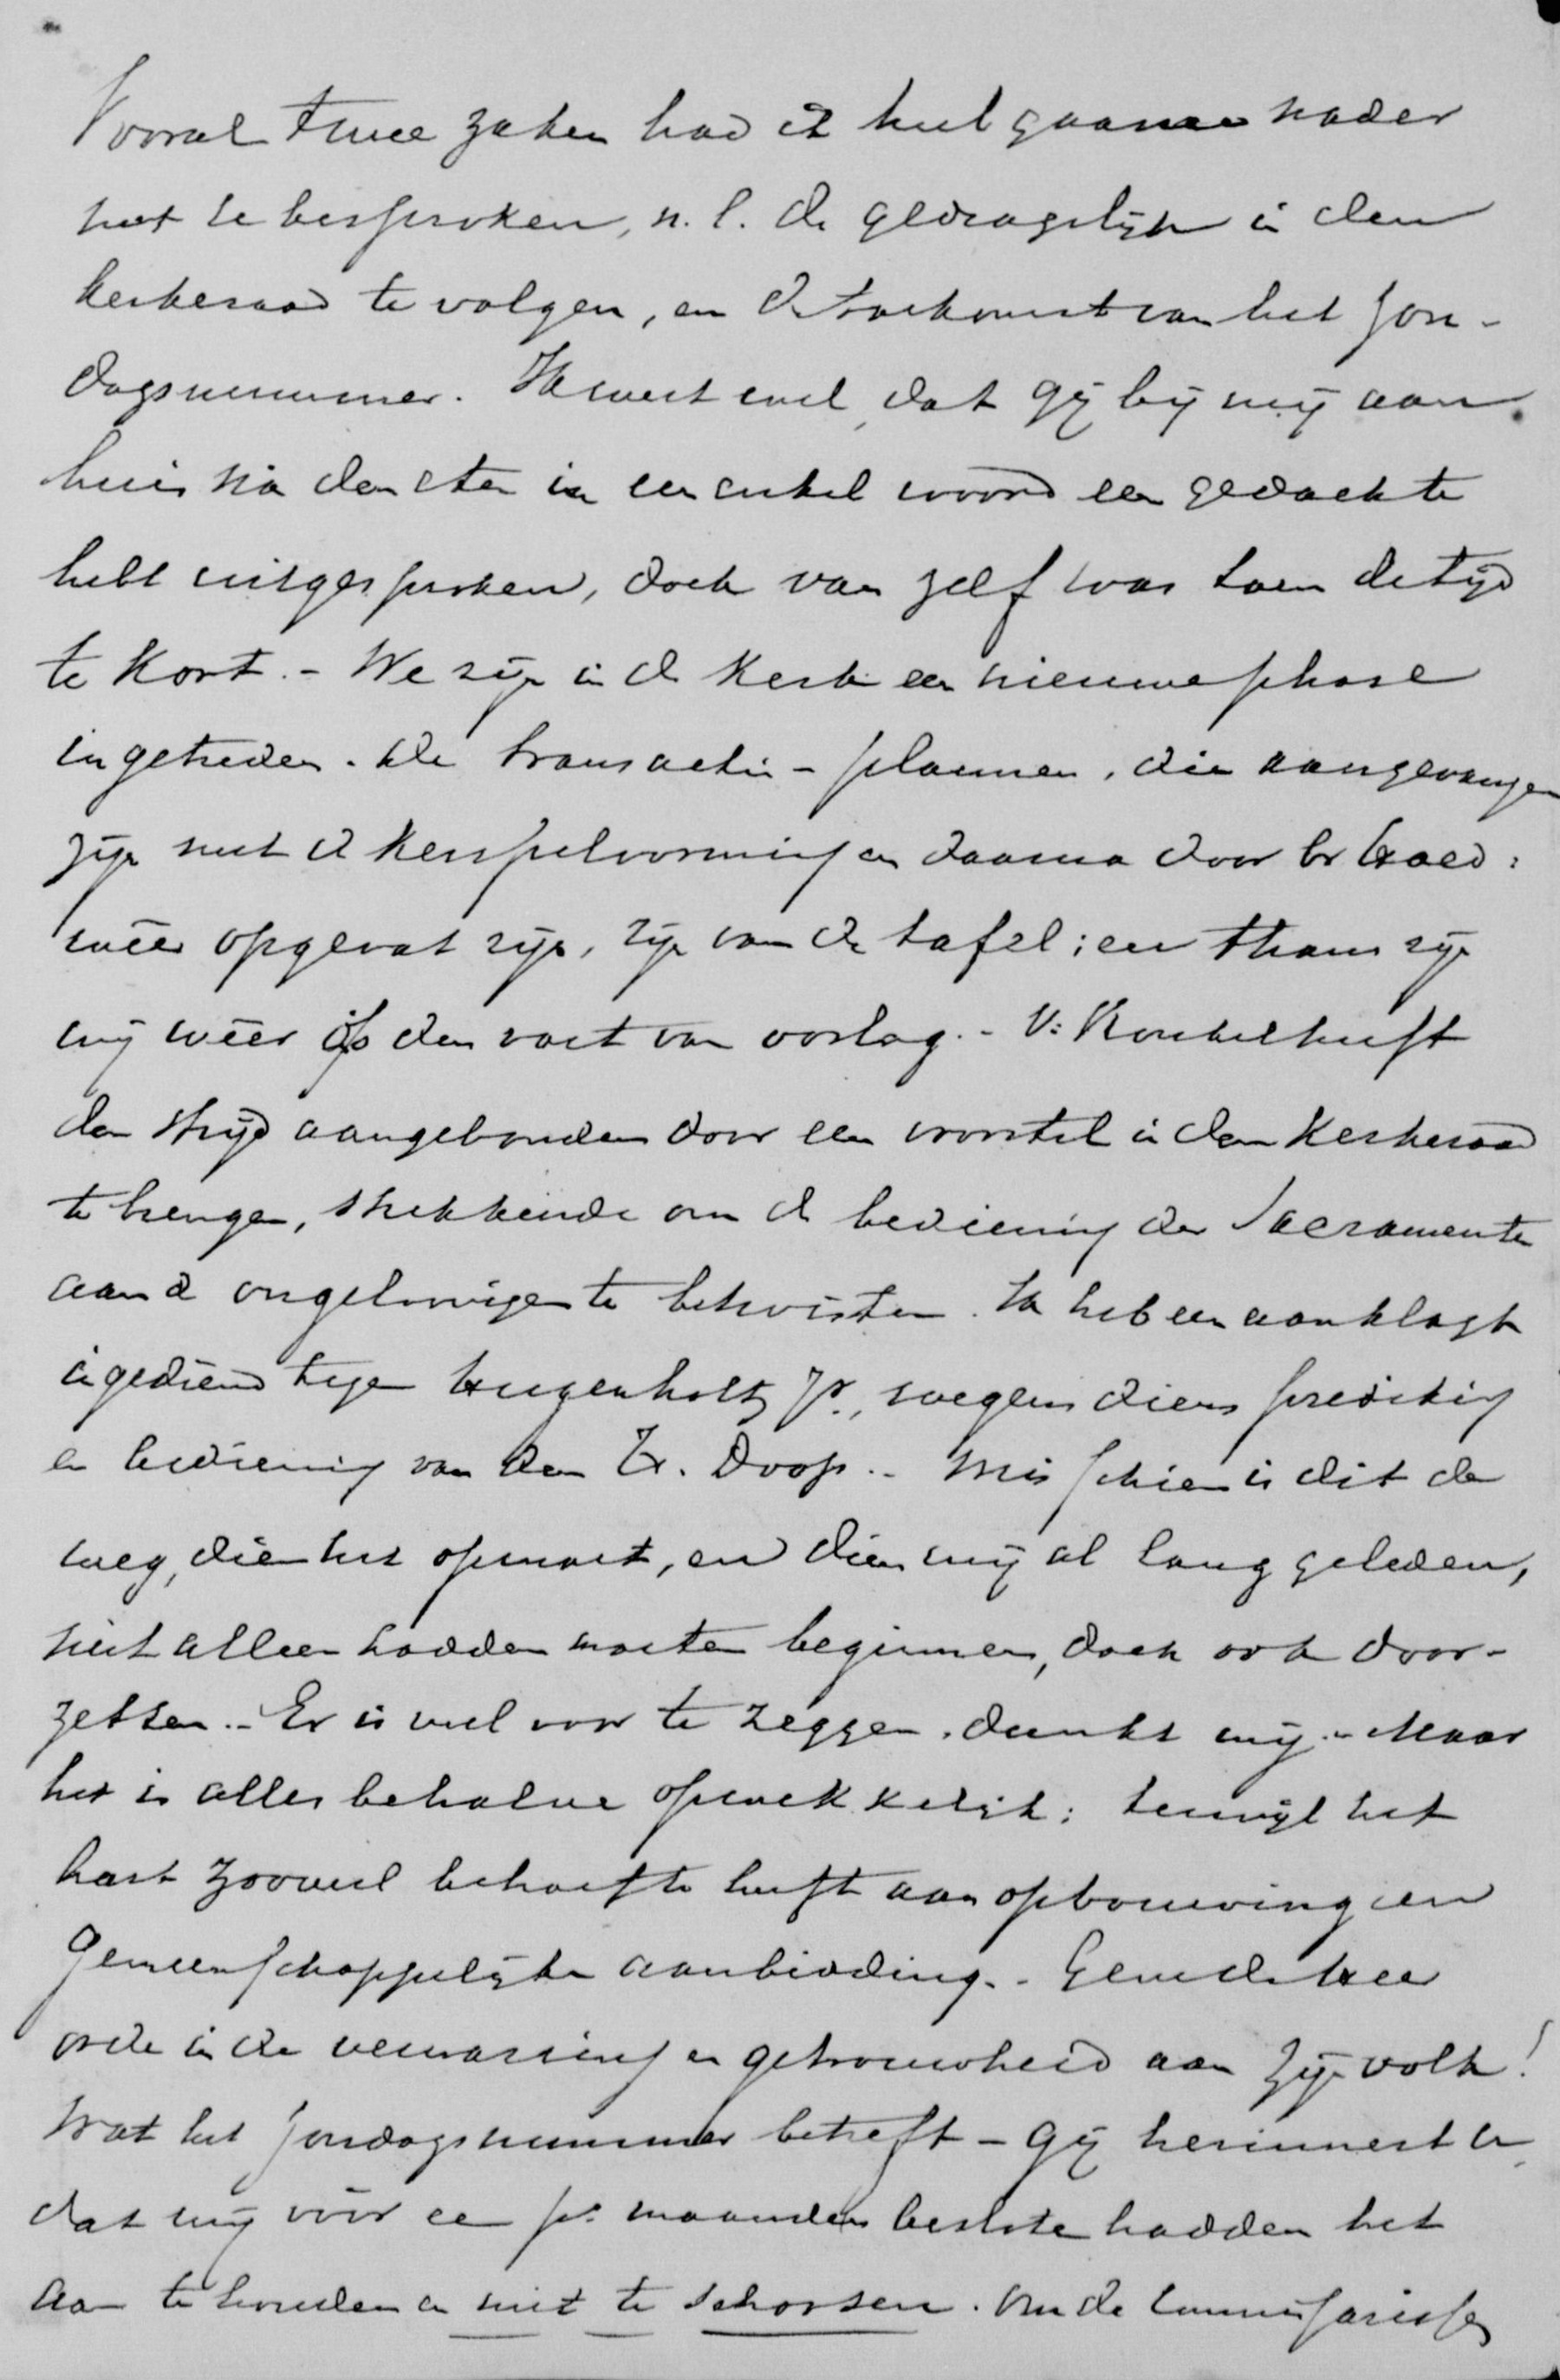 Vooral twee zaken had ik heel gaarne nader
met u besproken, n.l. de gedragslijn in den
kerkeraad te volgen, en de toekomst van het Zon-
dagsnummer. Ik weet wel, dat gij bij mij aan
huis na den eten in een enkel woord een gedachte
hebt uitgesproken, doch van zelf was toen de tijd
te kort. - We zijn in de Kerk een nieuwe phase
ingetreden. De transactie-plannen, die aangevangen
zijn met de kerspelvorming en daarna door br
weer opgevat zijn, zijn van de tafel; en thans zijn
wij weer op den voet van oorlog. - V: Ronkel heeft
den strijd aangebonden door een voorstel in den Kerkeraad
te brengen, strekkende om de bediening der Sacramenten
aan de ongeloovigen te betwisten. Ik heb een aanklagt
ingediend tegen Hugenholtz Jr., wegens diens prediking
en bediening van den H. Doop. - Misschien is dit de
weg, dien het opmoet, en dien wij al lang geleden,
niet alleen hadden moeten beginnen, doch ook door-
zetten. - Er is veel voor te zeggen, dunkt mij. - Maar
het is alles behalve opwekkelijk; terwijl het
hart zooveel behoefte heeft aan opbouwing en
gemeenschappelijke aanbidding. - Geve de Heer
orde in de verwarring en getrouwheid aan Zijn volk!
Wat het Zondagsnummer betreft - gij herinnert u
dat wij vóór een pr. maanden besloten hadden het
aan te houden en niet te schorsen. Om de Commissarissen